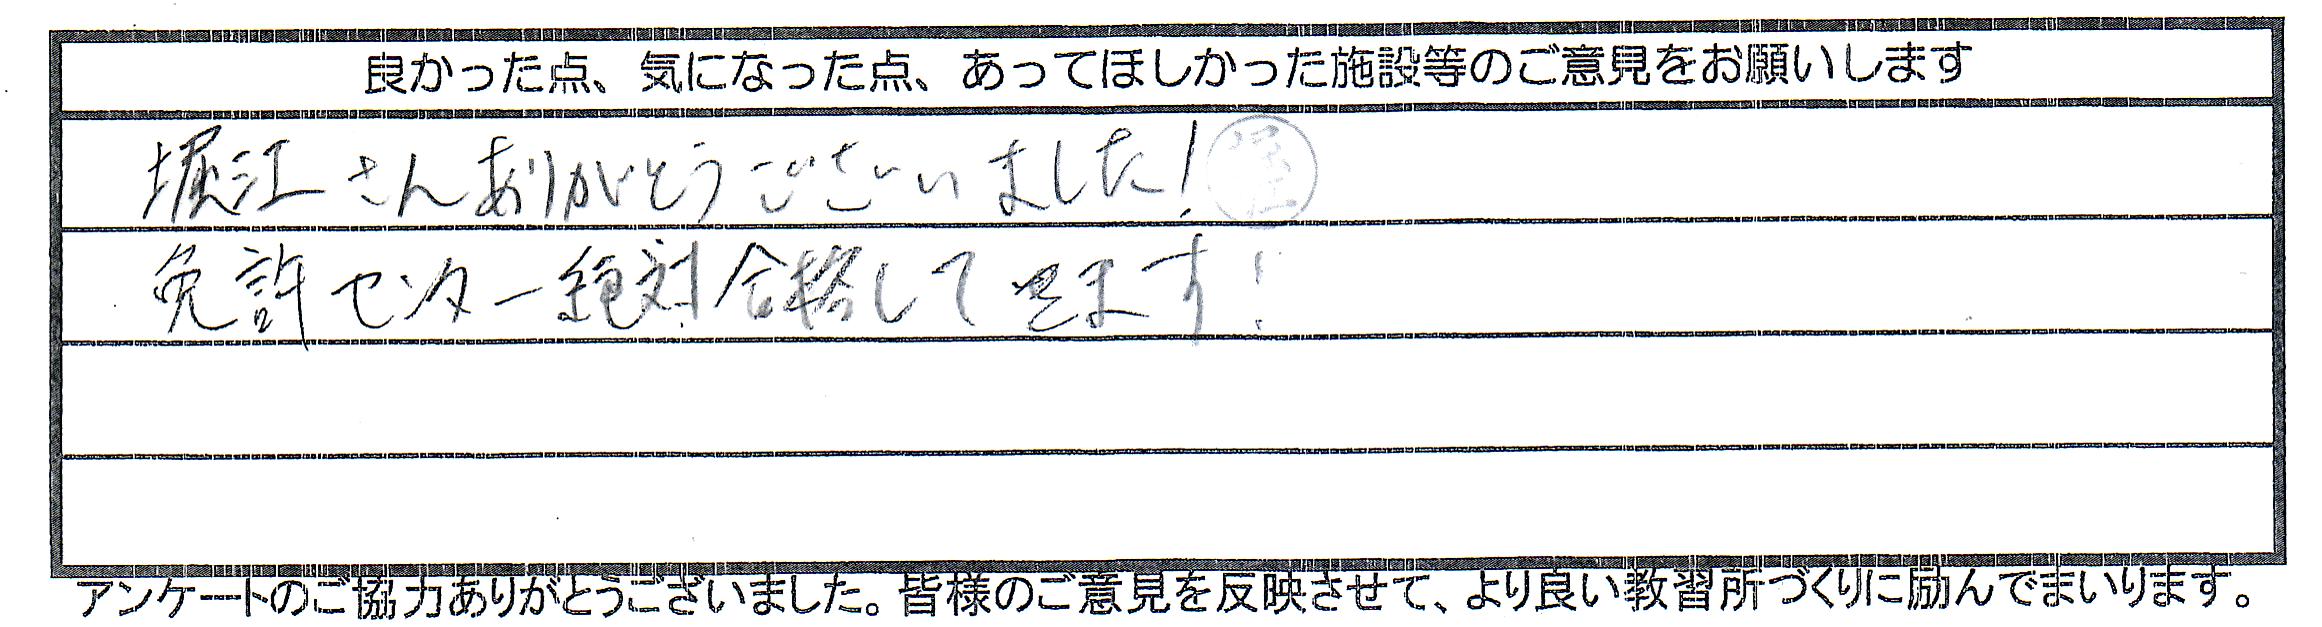 良かった点、気になった点、あってほしかった施設等のご意見をお願いします
堀江さんありがとうございました！ 堀江
免許センター絶対合格してきます！
アンケートのご協力ありがとうございました。皆様のご意見を反映させて、より良い教習所づくりに励んでまいります。